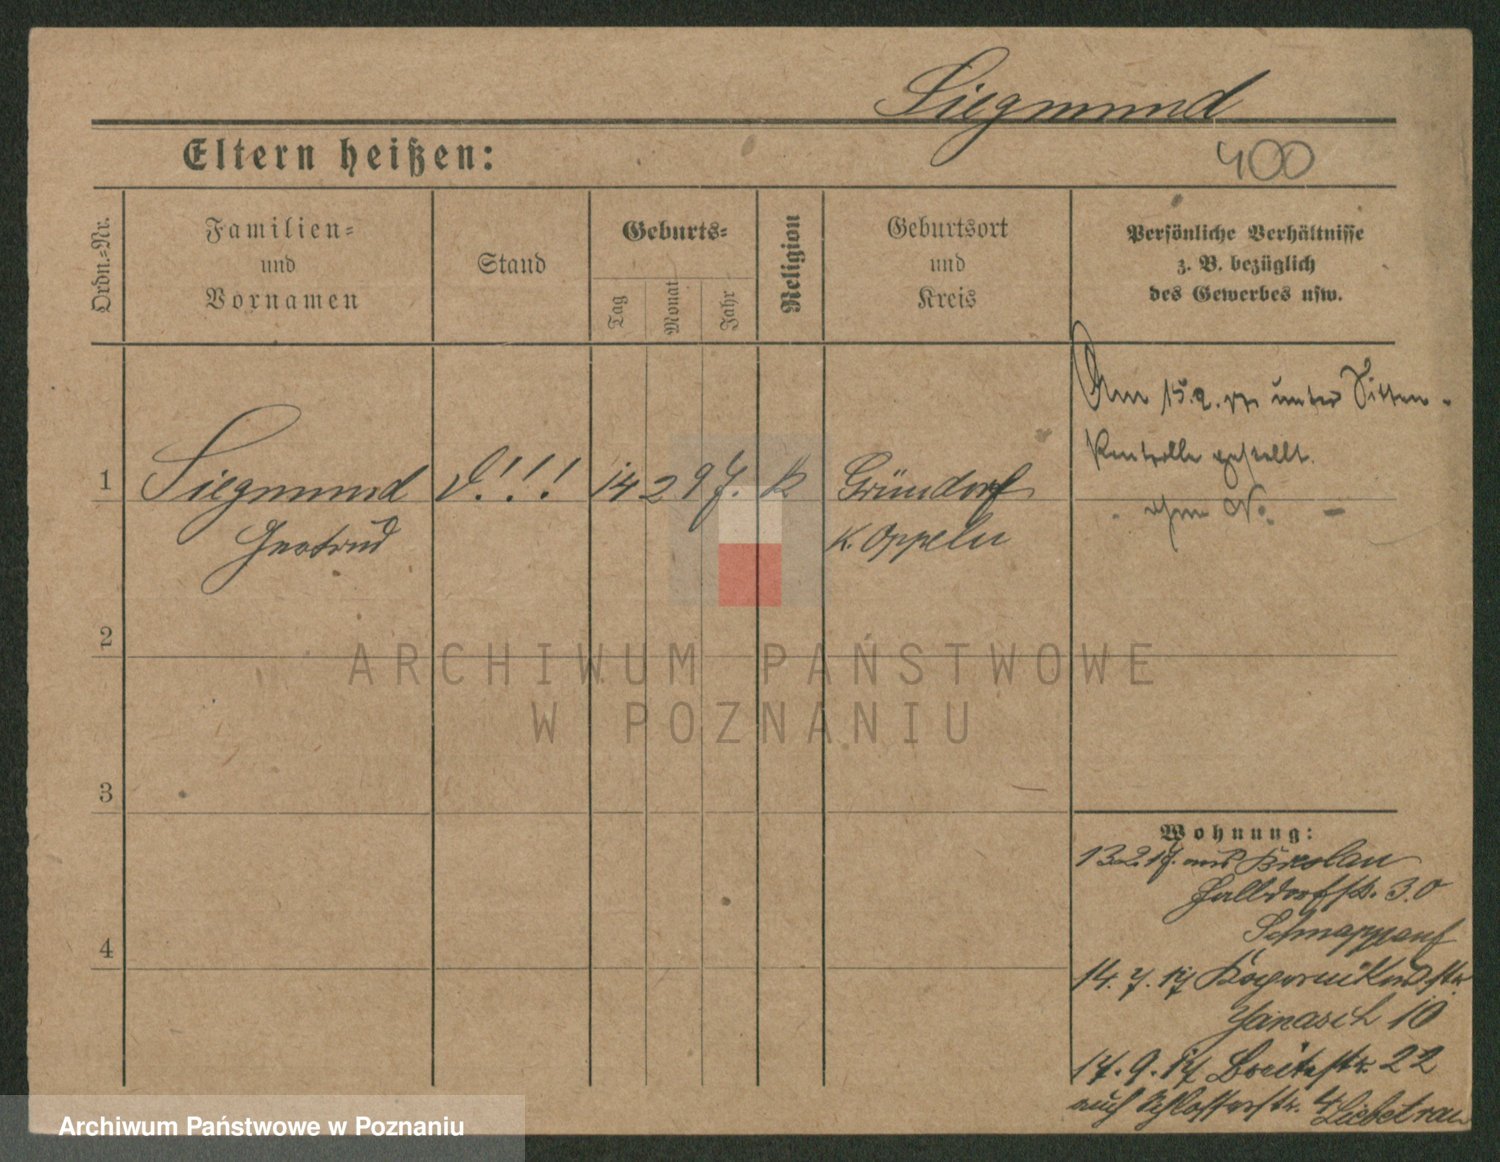 Siegmund
400
Eltern heißen:
Ordn.=Nr.
Familien=
und
Vornamen
Stand
Geburts=
Tag
Monat
Jahr
Religion
Geburtsort
und
Kreis
Persönliche Verhältnisse
z. B. bezüglich
des Gewerbes usw.
1
Siegmund
Gertrud
14 2 97. K
Gründorf
K. Oppeln
Am 15.2.17 unter Sitten-
Kontrolle gestellt.
2
3
4
Wohnung:
13.2.17. aus Breslau
30
Schnappauf
14. 7. 17
Janasch 10
17. 9. 17 Breitestr. 22
auf Schlosserstr. 4 Liebetrau
ARCHIWUM PAŃSTWOWE
W POZNANIU
Archiwum Państwowe w Poznaniu